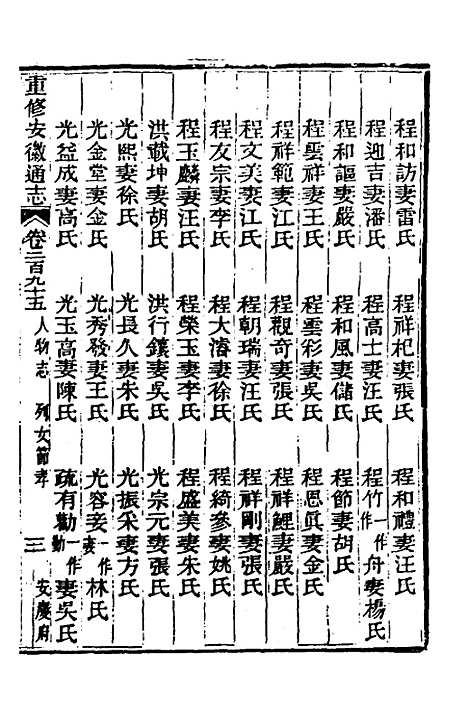 程和訪妻雷氏 程祥杞妻張氏 程和禮妻汪氏
程迎吉妻潘氏 程高士妻汪氏 程竹一作舟妻楊氏
程和謳妻嚴氏 程和風妻儲氏 程節妻胡氏
程雲祥妻王氏 程雲彩妻吳氏 程恩眞妻金氏
程祥範妻江氏 程觀奇妻張氏 程祥鯉妻嚴氏
程文美妻江氏 程朝瑞妻汪氏 程祥剛妻張氏
程友宗妻李氏 程大濬妻徐氏 程綺參妻姚氏
程玉麟妻汪氏 程榮玉妻李氏 程盛美妻朱氏
洪戴坤妻胡氏 洪行鑲妻吳氏 光宗元妻張氏
光熙妻徐氏 光長久妻朱氏 光振采妻方氏
光金堂妻金氏 光秀發妻王氏 光容妾一作妻林氏
光益成妻高氏 光玉高妻陳氏 疏有勸一作勤妻吳氏
重修安徽通志 卷二百九十五 人物志 列女節孝 三 安慶府